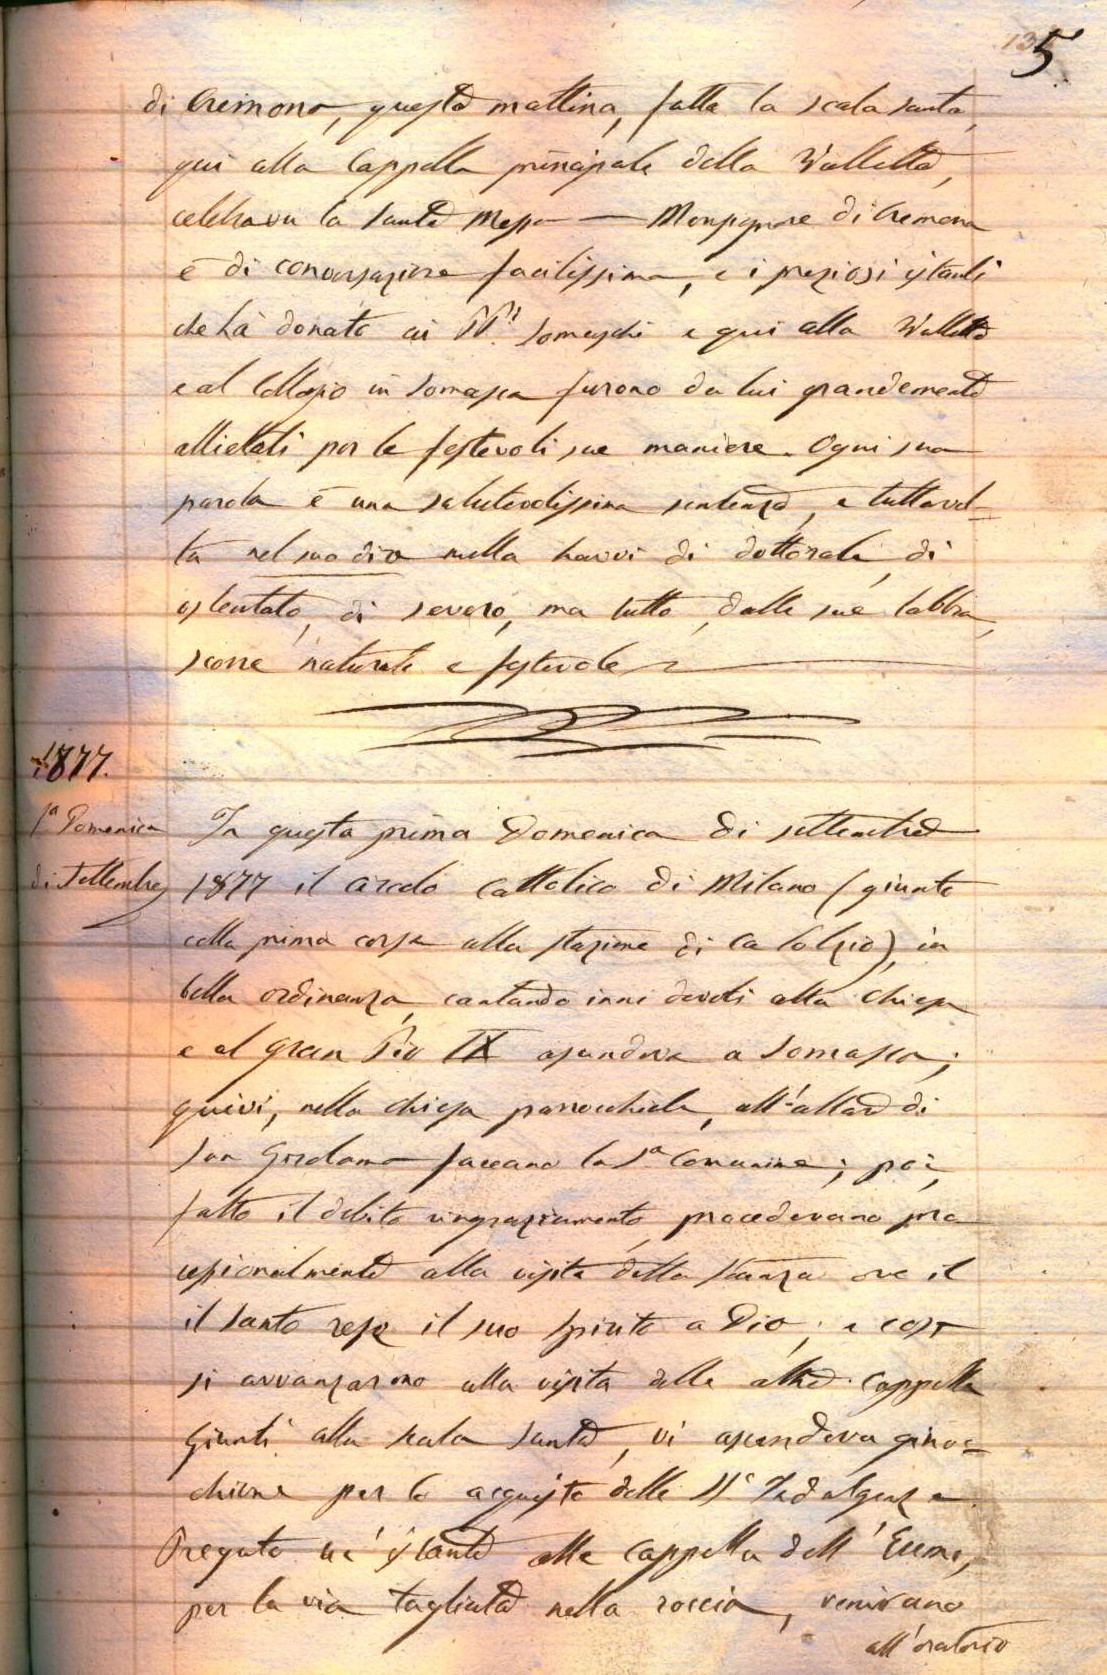 5
di Cremona, questa mattina, fatta la scala santa,
qui alla Cappella principale della Valletta,
celebrava la Santa Messa — Monsignore di Cremona
è di conversazione facilissima, e i preziosi istanti
che ha donato ai PP.i Somaschi e qui alla Valletta
e al Collegio in Somasca furono da lui grandemente
allietati per le festevoli sue maniere. Ogni sua
parola è una salutevolissima sentenza, e tuttavol-
ta nel suo dire nulla havvi di dottorale, di
ostentato, di severo, ma tutto, dalle sue labbia,
scorre naturale e festevole
1877.
1a Domenica
di Settembre
In questa prima Domenica di settembre
1877 il circolo cattolico di Milano (giunto
colla prima corsa alla stazione di Calolzio), in
bella ordinanza, cantando inni devoti alla Chiesa
e al gran Pio IX ascendeva a Somasca;
quivi, nella chiesa parrocchiale, all'altare di
San Girolamo faceano la Sa Comunione; poi,
fatto il debito ringraziamento, procedevano pro
cessionalmente alla visita della stanza ove il
il santo rese il suo spirito a Dio; e così
si avvanzarono alla visita delle altre cappelle
Giunti alla scala santa, vi ascendeva ginoc=
chione per lo acquisto delle Ste Indulgenze.
Pregato un' istante alla cappella dell' Eremo,
per la via tagliata nella roccia, venivano
all'oratorio